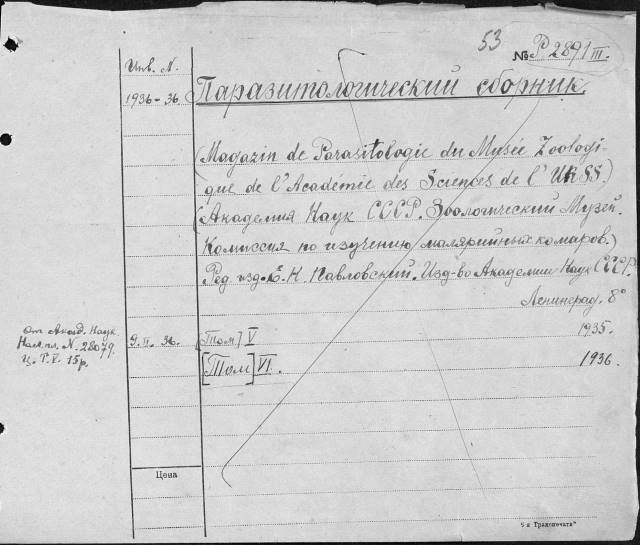 53
№ P 2891 III.
Инв. N.
1936-36.
Паразитологический сборник.
(Magazin de Parasitologie du Musée Zoologi-
que de l'Académie des Sciences de l' URSS.)
(Академия Наук СССР. Зоологический Музей.
Комиссия по изучению малярийных комаров.)
Ред. изд. Е. Н. Павловский. Изд-во Академии Наук СССР.
Ленинград. 8°
от Акад. Наук
Накл. N. 28079.
Ц. Р. V. 15 р.
9. II. 36.
[Том] V
1935.
[Том] VI.
1936.
Цена